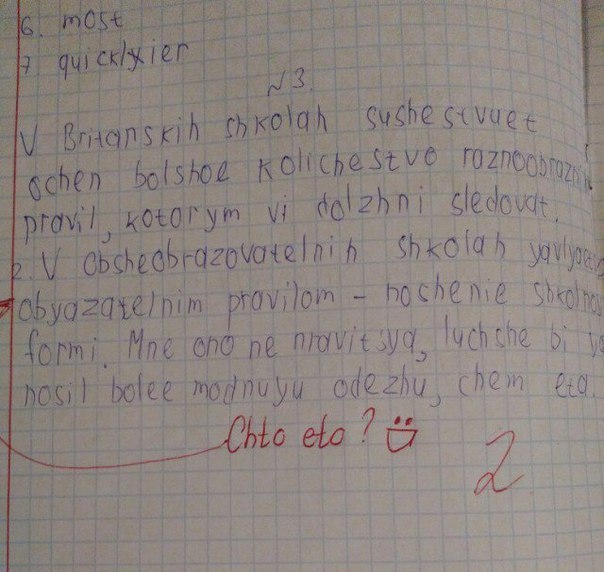 6. most
7 quicklyier
N 3.
V Britanskih shkolah sushestvuet
ochen bolshoe kolichestvo raznoobraznih
pravil, kotorym vi dolzhni sledovat.
2. V obsheobrazovatelnih shkolah
obyazatelnim pravilom - noshenie
formi. Mne ono ne nravitsya, luchshe bi ya
nosil bolee modnuyu odezhu, chem eta.
Chto eto?
2